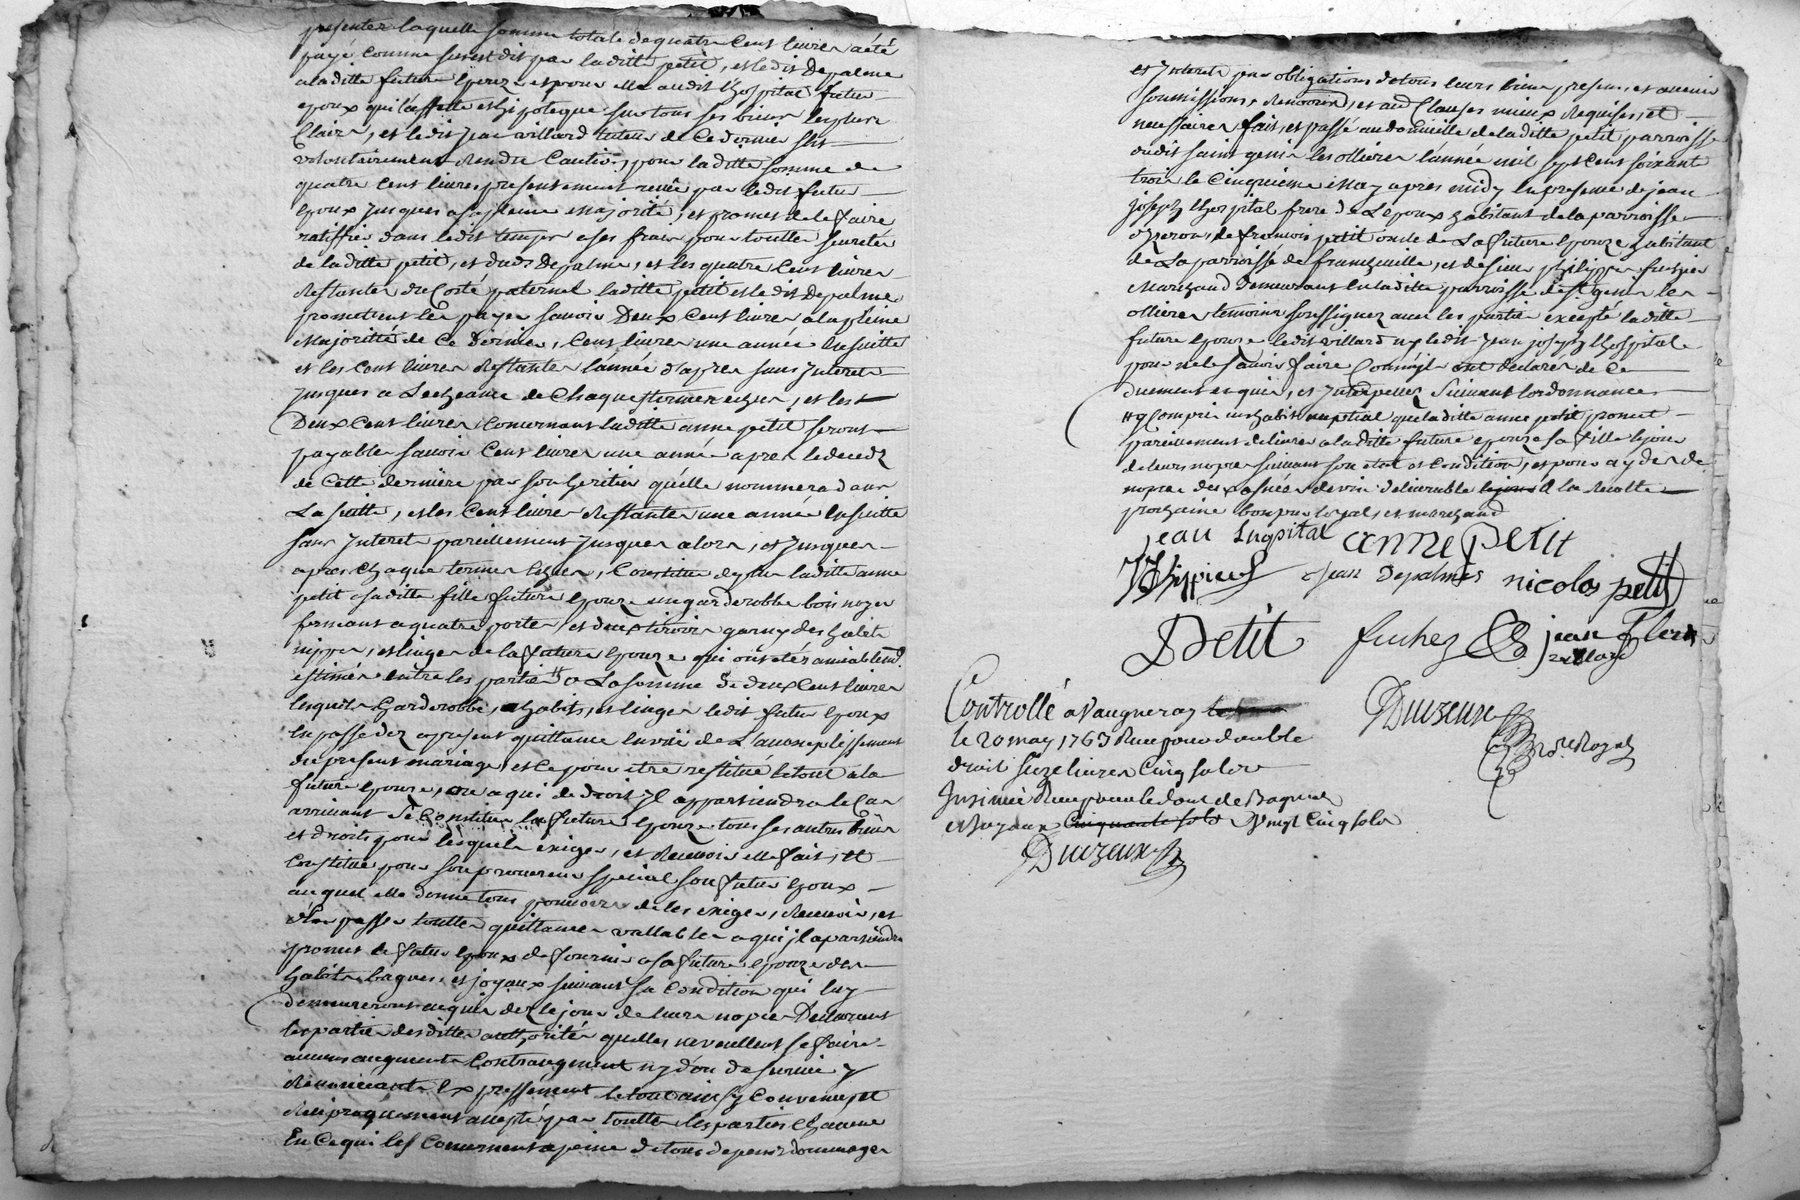 presentes laquelle somme totale de quatre cent livres a été
payé comme sus est dit par laditte petit, et ledit Depalme
a laditte future epouze et pour elle audit Lhospital futur
epoux qui l'assette et hipoteque sur tous ses biens les plus
Clairs, et ledit jean villard tuteur de Ce dernier s'est
volontairement Rendu Caution, pour laditte somme de
quatre cent livres presentement reçüe par ledit futur
epoux jusques a sa pleine Majorité, et promet de le faire
ratiffier dans ledit temps a ses frais pour toutte sureté
de laditte petit, et dudt Depalme, et les quatre Cent livres
Restantes du Costé paternel laditte petit et ledit Depalme
promettent les payer savoir Deux Cent livres a la pleine
Majoritté de Ce Dernier, Cent livres une année Ensuitte
et les Cent livres Restantes l'année d'apres sans Interets
Jusques a Lecheance de Chaques termes echus, et les
Deux Cent livres Concernant laditte anne petit seront
payables savoir Cent livres une année apres le decedz
de Cette derniere par son heritier qu'elle nommera dans
La suitte, et les Cent livres Restantes une année Ensuitte
sans Interets pareillement Jusques alors, et Jusques
apres Chaque termes Echus, Constitue de plus laditte anne
petit a saditte fille future Epouze une garderobbe bois noyer
fermant a quatre portes, et deux tiroirs garny des habits
nippes, et linges de la future Epouze qui ont étés amiablemt
estimés entre les parties # a La somme de deux Cent livres
lesquels Garderobbe, habits, et linges ledit futur Epoux
En passe dez apresent quittance En vüe de L'accomplissement
du present mariage, et Ce pour etre restitué le tout a la
future Epouze, ou a qui de droit Jl appartiendra le Cas
arrivant Se Constitue la future Epouze tous ses autres biens
et droits pour lesquels exiger, et Recevoir elle fait, et
Constitue pour son procureur special son futur Epoux
auquel elle donne tous pouvoirs de les exiger, Recevoir, et
d'En passer toutte quittances vallables a qui jl apartiendra
promet le futur Epoux de fournir a sa future Epouze des
habits bagues, et joyaux suivant sa Condition qui luy
demeureront acquis dez le jour de leurs nopces Declarent
les parties desdittes authorités quelles ne veullent se faire
aucuns augments Contraugment ny don de survie y
Renonceants Expressément le tout ainsy Convenu, et
Reciproquement accepté par touttes les parties Chacune
En Ce qui les Concernent a peine de tous depens, dommages
et Interets par obligations de tous leurs biens presens, et avenir
soumissions, Renoonds, et aux Clauses mieux Requises, et
necessaires fait, et passé au domicille de laditte petit, parroisse
dudit saint genis les ollieres L'année mil sept Cent soixant
trois le Cinquieme May apres midy En presence de jean
Joseph Lhospital frere de L'epoux habitant de la parroisse
d'yzeron, de francois petit oncle de La future Epouze habitant
de La parroisse de francheville, et de sieur philippe fuchez
Marchand Demeurant En laditte parroisse de st genis les
ollieres temoins soussignez avec les parties excepté laditte
future Epouze ledit villard ny ledit jean joseph Lhospital
pour ne le savoir faire Comm'jls ont declarés de Ce
duement enquis, et Interpellez Suivant L'ordonnance
# y Compris un habit nuptial que laditte anne petit promet
pareillement delivrer a laditte future epouze sa fille le jour
de leurs nopces suivant son etat et Condition, et pour ayder de
nopces des asnées de vin delivrable a la Recolte
prochaine bon pur loyal, et marchand
jean Lhopital anne petit
Jean Depalmes nicolas petit
Petit fuchez
Controllé a Vaugneray
le 20 may 1763 Reçu pour double
droit Seize livres Cinq sols
Insinué Reçu pour le don de Bagues
et Joyaux Cinquante sols Vingt Cinq sols